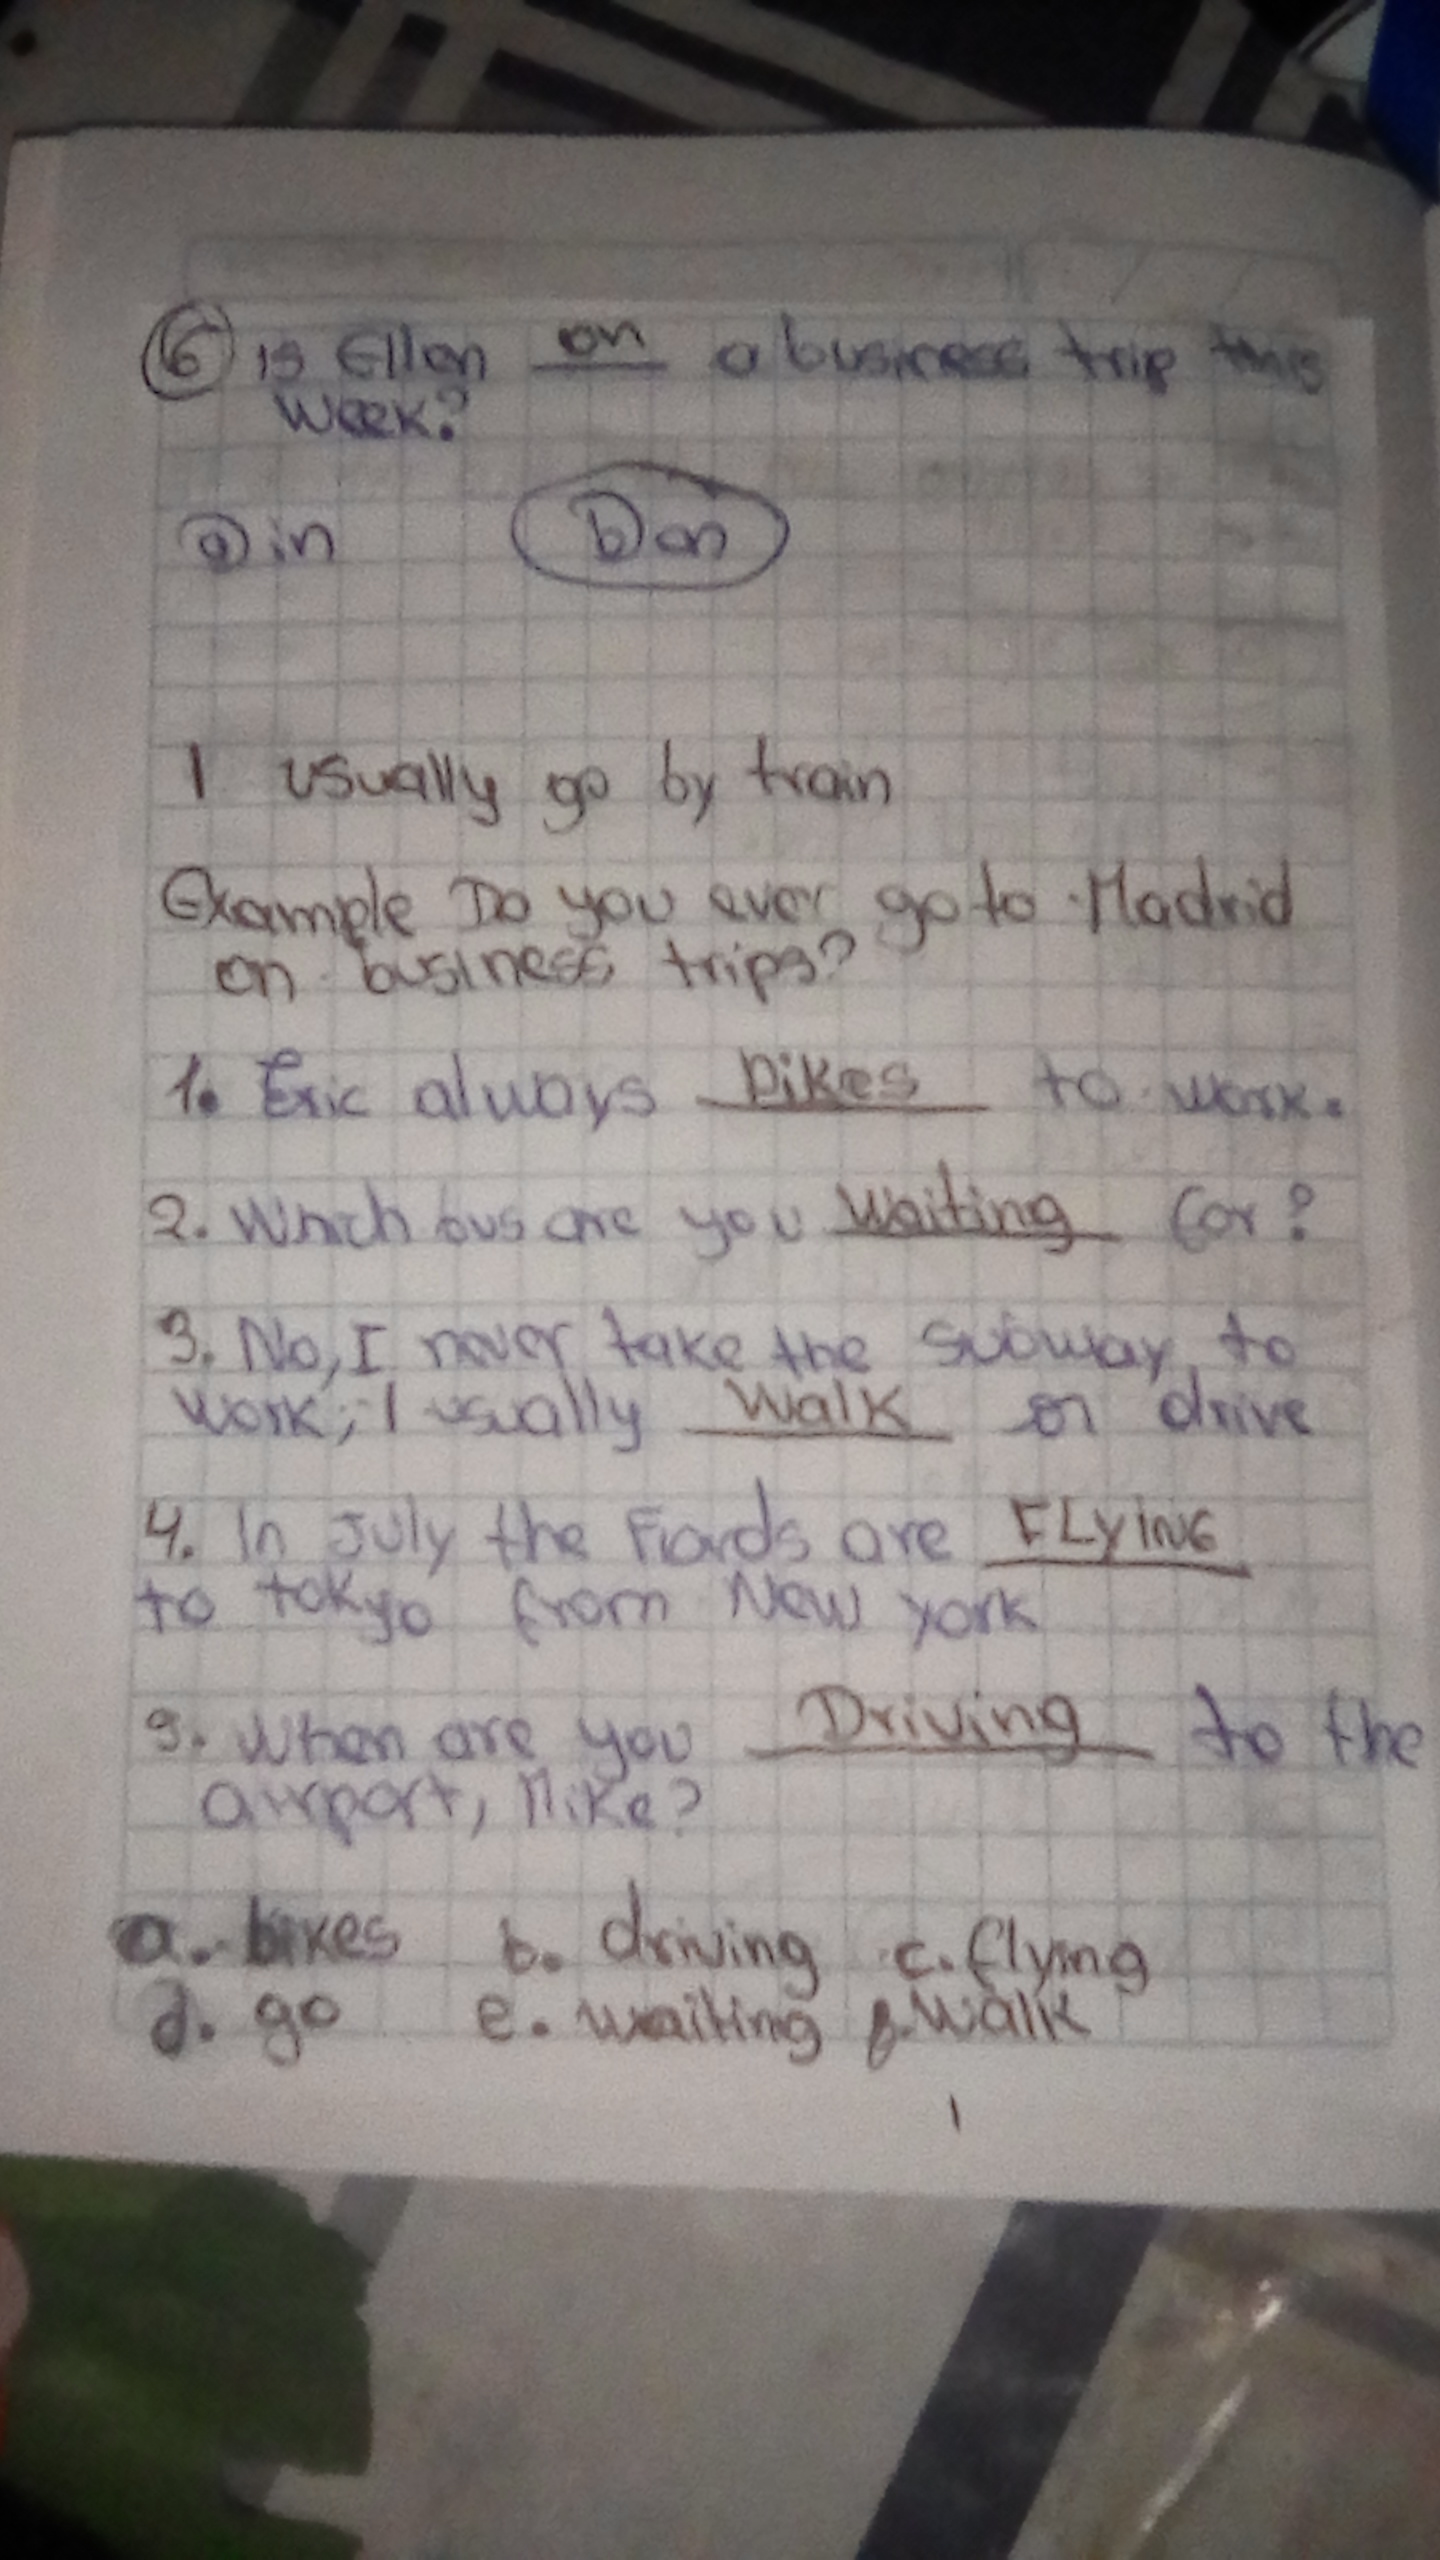 6 is Ellen on a business trip this
week?
a) in b) on
I usually go by train
Example Do you ever go to Madrid
on business trips?
1. Eric always bikes to work.
2. Which bus are you waiting for?
3. No, I never take the subway, to
work; I usually walk or drive
4. In July the Fiards are FLYING
to tokyo from New york
5. When are you Driving to the
airport, Mike?
a. bikes b. driving c. flying
d. go e. waiting f. walk